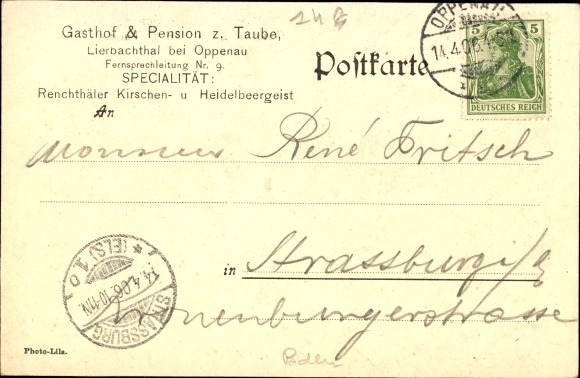 Gasthof & Pension z. Taube,
Lierbachthal bei Oppenau
Fernsprechleitung Nr. 9.
SPECIALITÄT:
Renchthäler Kirschen- u Heidelbeergeist
Postkarte
OPPENAU
14.4.06.
5 5
DEUTSCHES REICH
An
Monsieur René Fritsch
in Strassburg i/E
Kronenburgerstrasse
STRASSBURG
14.4.06.10-11N.
* (ELS) 1 o
Photo-Lila.